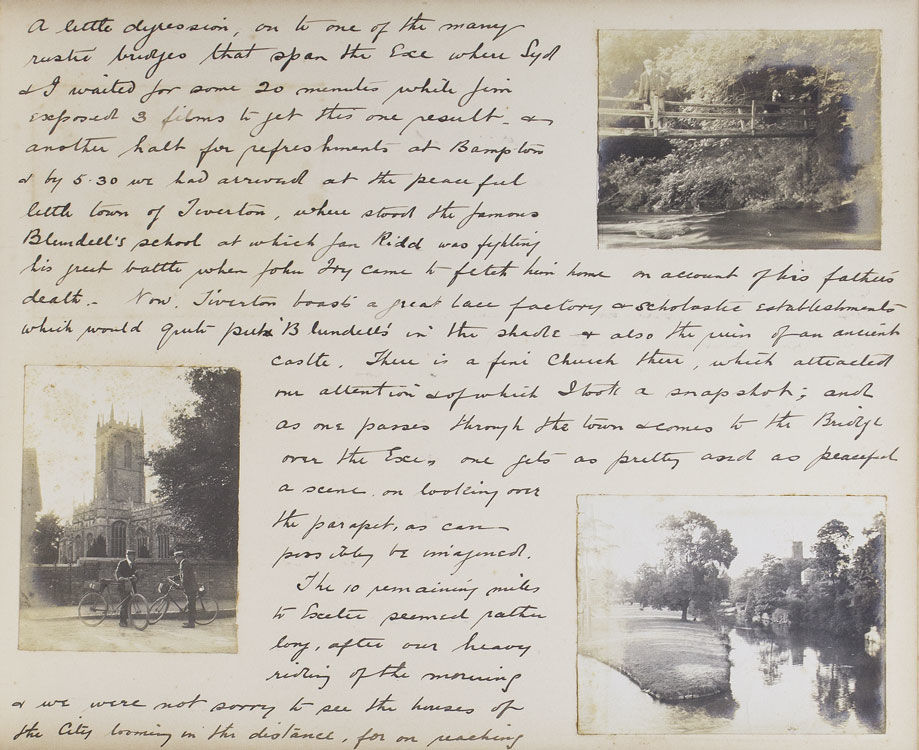 A little digression, on to one of the many
rustic bridges that span the Exe where Syd
& I waited for some 20 minutes while Jim
exposed 3 films to get this one result. &
another halt for refreshments at Bampton
& by 5.30 we had arrived at the peaceful
little town of Tiverton, where stood the famous
Blundell's school at which Jan Ridd was fighting
his great battle when John Fry came to fetch him home on account of his father's
death. Now, Tiverton boasts a great lace factory & scholastic establishments
which would quite put Blundell's in the shade & also the ruin of an ancient
castle. There is a fine Church there, which attracted
our attention & of which I took a snapshot; and
as one passes through the town & comes to the Bridge
over the Exe, one gets as pretty and as peaceful
a scene on looking over
the parapet, as can
possibly be imagined.
The 10 remaining miles
to Exeter seemed rather
long, after our heavy
riding of the morning
& we were not sorry to see the houses of
the City looming in the distance, for on reaching